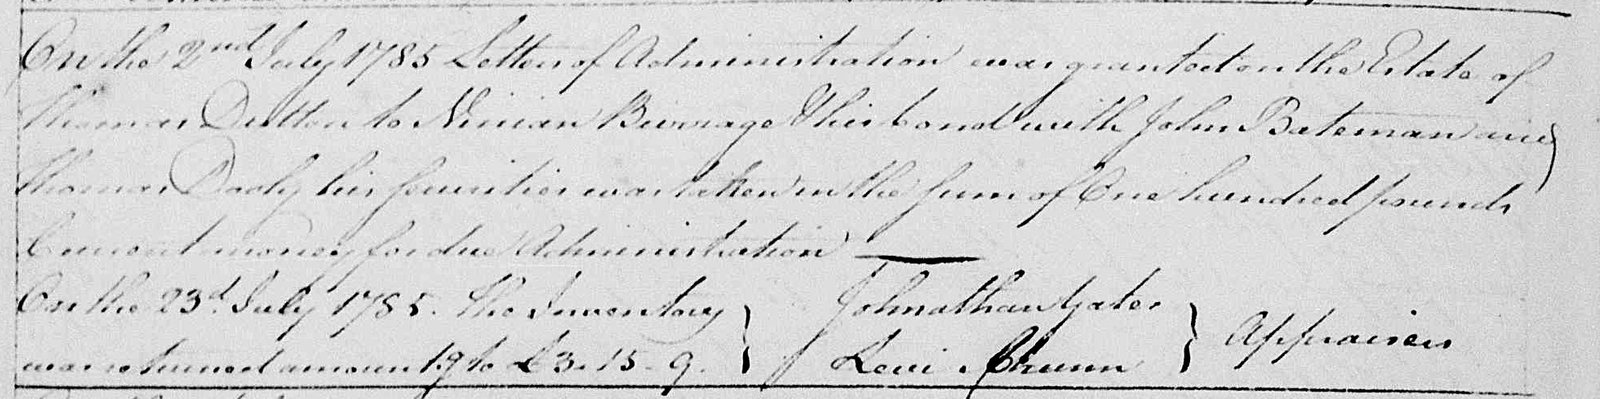 On the 2nd July 1785 Letters of Administration was granted on the Estate of
Thomas Dutton to Ninian Burrage & his bond with John Bateman and
Thomas Dooly his securities was taken in the sum of One hundred pounds
Current money for due Administration
On the 23d. July 1785. the Inventory } Johnathan Yates } Appraisers
was returned amount'g to £ 3. 15 - 9. } Levi Chunn